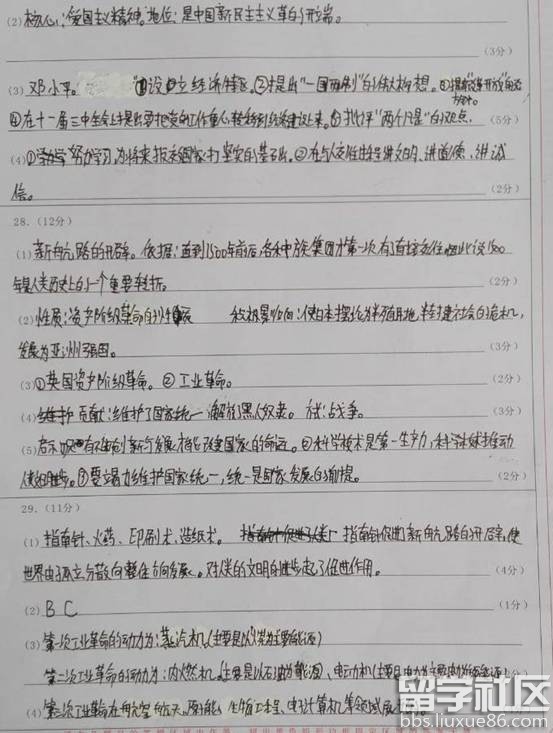 (2) 核心：爱国主义精神。地位：是中国新民主主义革命的开端。
(3分)
(3) 邓小平。 ①设立经济特区。②提出"一国两制"的伟大构想。
④在十一届三中全会上提出要把党的工作重心转移到经济建设上来。⑤批评"两个凡是"的观点。 (5分)
(4) ①努力学习，为将来报效国家打坚实的基础。②在与人交往中讲文明、讲道德、讲诚
信。 (2分)
28. (12分)
(1) 新航路的开辟。依据：直到1500年前后，各种族集团才第一次有了直接交往，因此说1500
年是人类历史上的一个重要转折。 (2分)
(2) 性质：资产阶级革命的性质 积极影响：使日本摆脱沦为半殖民地半封建社会的危机，
发展为亚洲强国。 (3分)
(3) ①英国资产阶级革命。②工业革命。 (2分)
(4) 贡献：维护了国家统一，解放了黑人奴隶。 方式：战争。 (3分)
(5) ②科学技术是第一生产力，科学技术推动
③要竭力维护国家统一，统一是国家发展的前提。 (2分)
29. (11分)
(1) 指南针、火药、印刷术、造纸术。 指南针促进新航路的开辟，使
世界由孤立分散向整体方向发展。对人类的文明的进步起了促进作用。 (4分)
(2) B C (1分)
(3) 第一次工业革命的动力为：蒸汽机(主要是以煤为主要能源)
第二次工业革命的动力为：内燃机(主要是以石油为能源)、电动机
(4) 第三次工业革命在航空航天、原子能、生物工程、电子计算机等领域
留学社区
bbs.liuxue86.com